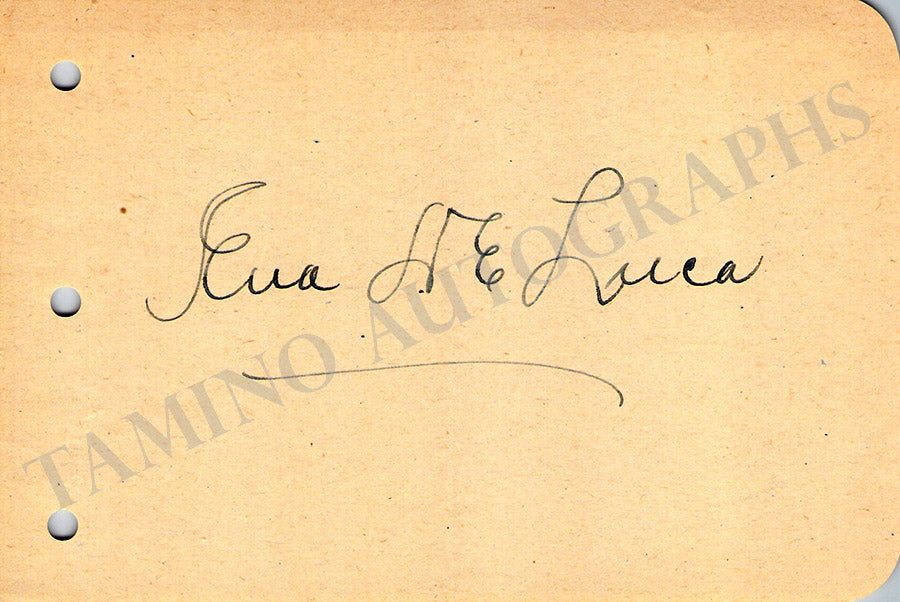 Eva De Luca
TAMINO AUTOGRAPHS